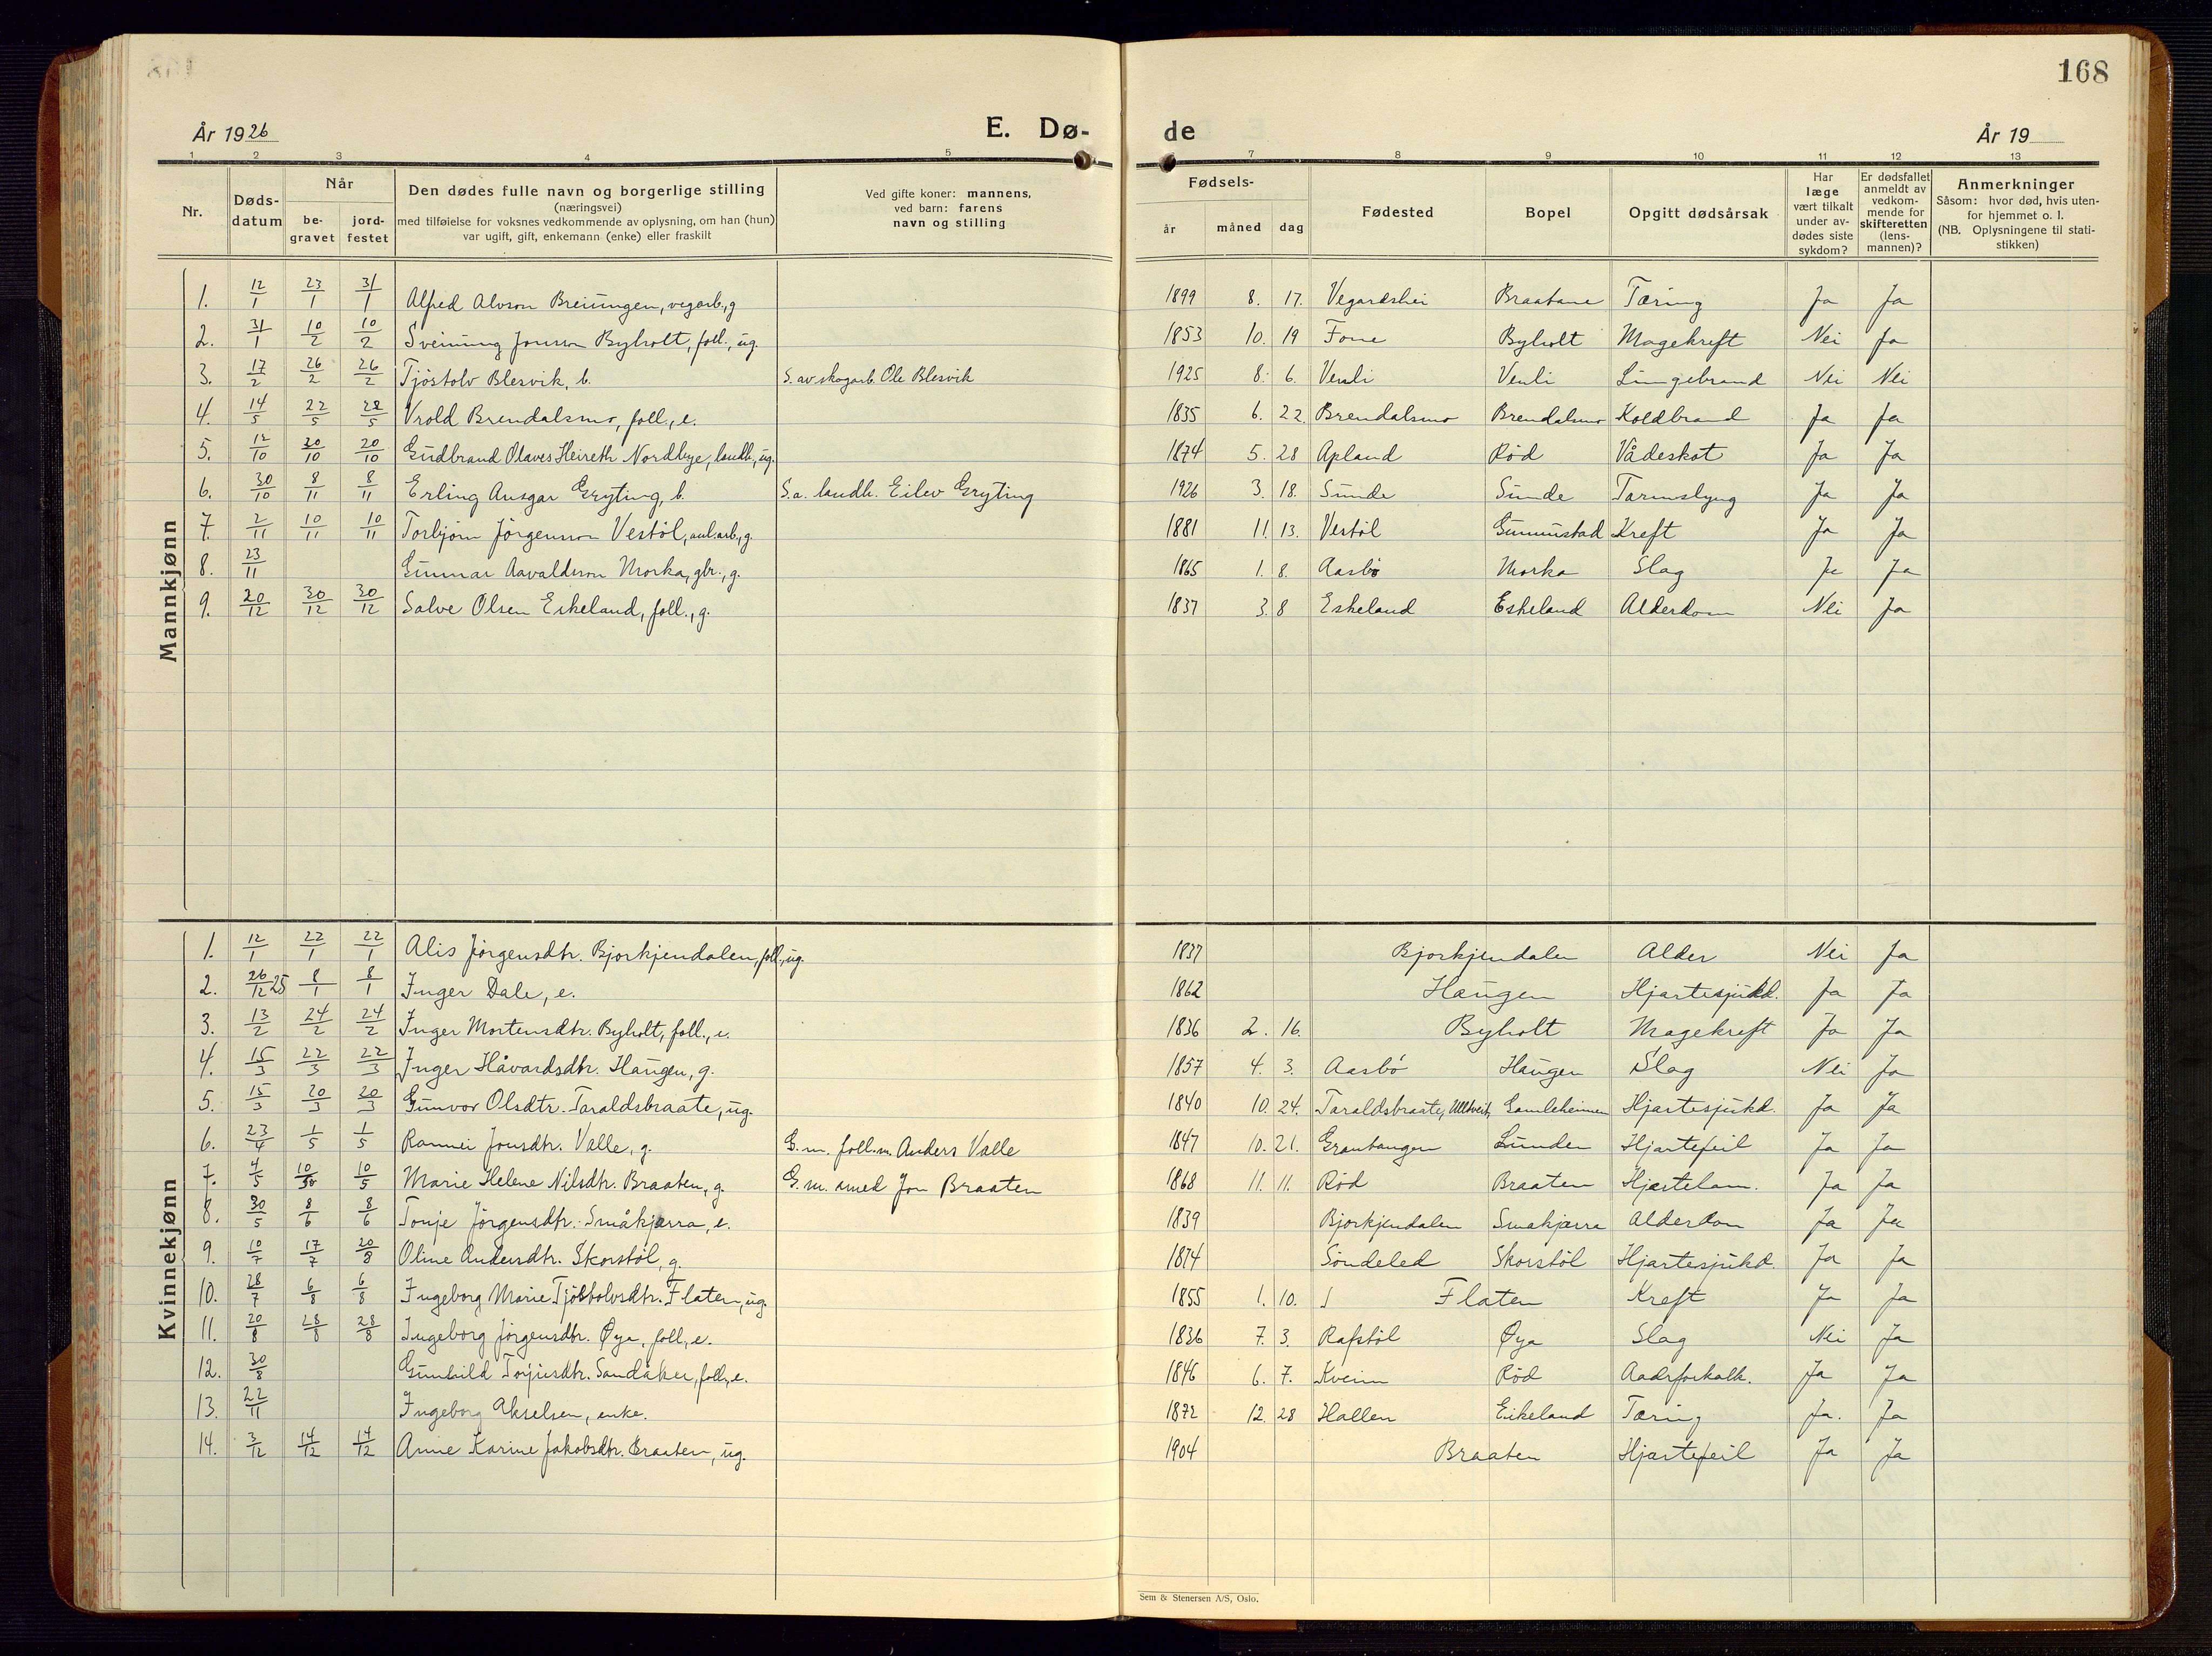 168
År 1926 E. Dø- de År 19
1 2 3 4 5 7 8 9 10 11 12 13
Nr. Døds-datum Når be-gravet jord-festet Den dødes fulle navn og borgerlige stilling (næringsvei) med tilføielse for voksnes vedkommende av oplysning, om han (hun) var ugift, gift, enkemann (enke) eller fraskilt Ved gifte koner: mannens, ved barn: farens navn og stilling Fødsels- år måned dag Fødested Bopel Opgitt dødsårsak Har læge vært tilkalt under av-dødes siste sykdom? Er dødsfallet anmeldt av vedkom-mende for skifteretten (lens-mannen)? Anmerkninger Såsom: hvor død, hvis uten-for hjemmet o. l. (NB. Oplysningene til stati-stikken)
Mannkjønn
1. 12/1 23/1 31/1 Alfred Alvson Breiungen, vegarb., g 1899 8. 17. Vegardshei Braatane Tæring Ja Ja
2. 31/1 10/2 10/2 Sveinung Jonsson Byholt, foll., ug. 1853 10. 19 Fone Byholt Magekreft Nei Ja
3. 17/2 26/2 26/2 Tjöstolv Blesvik, b. S. av skogarb. Ole Blesvik 1925 8. 6. Venli Venli Lungebrand Nei Nei
4. 14/5 22/5 22/5 Vrold Brendalsmo, foll., e. 1835 6. 22. Brendalsmo Brendalsmo Koldbrand Ja Ja
5. 12/10 20/10 20/10 Gudbrand Olaves Heireth Nordbye, landh., ug. 1874 5. 28 Apland Rød Vådeskot Ja Ja
6. 30/10 8/11 8/11 Erling Ansgar Gryting, b. S. a. landh. Eilev Gryting 1926 3. 18. Sunde Sunde Tarmslyng Ja Ja
7. 2/11 10/11 10/11 Torbjørn Jörgensson Vestöl, anl.arb., g. 1881 11. 13. Vestöl Gunnustad Kreft Ja Ja
8. 23/11 Gunnar Aavaldsson Morka, gbr., g. 1865 1. 8. Aasbö Morka Slag Ja Ja
9. 20/12 30/12 30/12 Salve Olsen Eskeland, foll., g. 1837 3. 8 Eskeland Eskeland Alderdom Nei Ja
Kvinnekjønn
1. 12/1 22/1 22/1 Alis Jörgensdtr. Bjorkjendalen, foll., ug. 1837 Bjorkjendalen Alder Nei Ja
2. 26/12 25 8/1 8/1 Inger Dale, e. 1862 Haugen Hjartesjukd. Ja Ja
3. 13/2 24/2 24/2 Inger Mortensdtr. Byholt, foll., e. 1836 2. 16. Byholt Magekreft Ja Ja
4. 15/3 22/3 22/3 Inger Håvardsdtr. Haugen, g. 1857 4. 3. Aasbö Haugen Slag Nei Ja
5. 15/3 20/3 20/3 Gunvor Olsdtr. Taraldsbraate, ug. 1840 10. 24. Taraldsbraate, Ulltveit, Gamleheimen Hjartesjukd. Ja Ja
6. 23/4 1/5 1/5 Rannei Jonsdtr. Valle, g. G. m. foll.m. Anders Valle 1847 10. 21. Grantangen Lunden Hjartefeil Ja Ja
7. 4/5 10/5 10/5 Marie Helene Nilsdtr. Braaten, g. G. m. smed Jon Braaten 1868 11. 11. Rød Braaten Hjartelam. Ja Ja
8. 30/5 8/6 8/6 Tonje Jörgensdtr. Småkjærra, e. 1839 Bjorkjendalen Smakjærra Alderdom Ja Ja
9. 10/7 17/7 20/8 Oline Andersdtr. Skorstöl, g. 1874 Søndeled Skorstöl Hjartesjukd. Ja Ja
10. 28/7 6/8 6/8 Ingeborg Marie Tjöstolvsdtr. Flaten, ug. 1855 1. 10. Flaten Kreft Ja Ja
11. 20/8 28/8 28/8 Ingeborg Jörgensdtr. Øya, foll., e. 1836 7. 3. Rafstöl Øya Slag Nei Ja
12. 30/8 Gunhild Torjusdtr. Sandåker, foll., e. 1846 6. 7. Kveim Rød Aadrforkalk. Ja Ja
13. 22/11 Ingeborg Akselsen, enke. 1872 12. 28 Hallen Eikeland Tæring Ja. Ja
14. 3/12 14/12 14/12 Anne Karine Jakobsdtr. Braaten, ug. 1904 Braaten Hjartefeil Ja Ja
Sem & Stenersen A/S, Oslo.